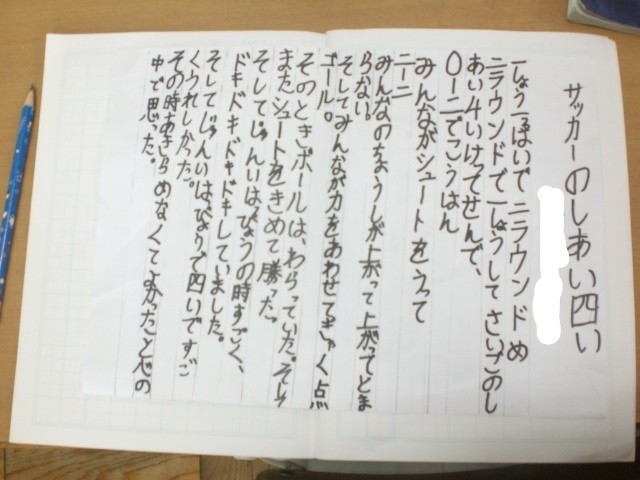 サッカーのしあい四い
一しょう一ぱいで二ラウンドめ
二ラウンドで一しょうしてさいごのし
あい4いけってせんで、
0ー二でこうはん
みんながシュートをうって
二ー二
みんなのちょうしが上がって上がってとま
らない。
そしてみんなが力をあわせてぎゃく点
ゴール。
そのときボールは、わらっていた。そして
またシュートをきめて勝った。
そしてじゅんいはぴょうの時すごく、
ドキドキドキドキしていました。
そしてじゅんいはぴょうで四いですご
くうれしかった。
その時あきらめなくてよかったと心の
中で思った。